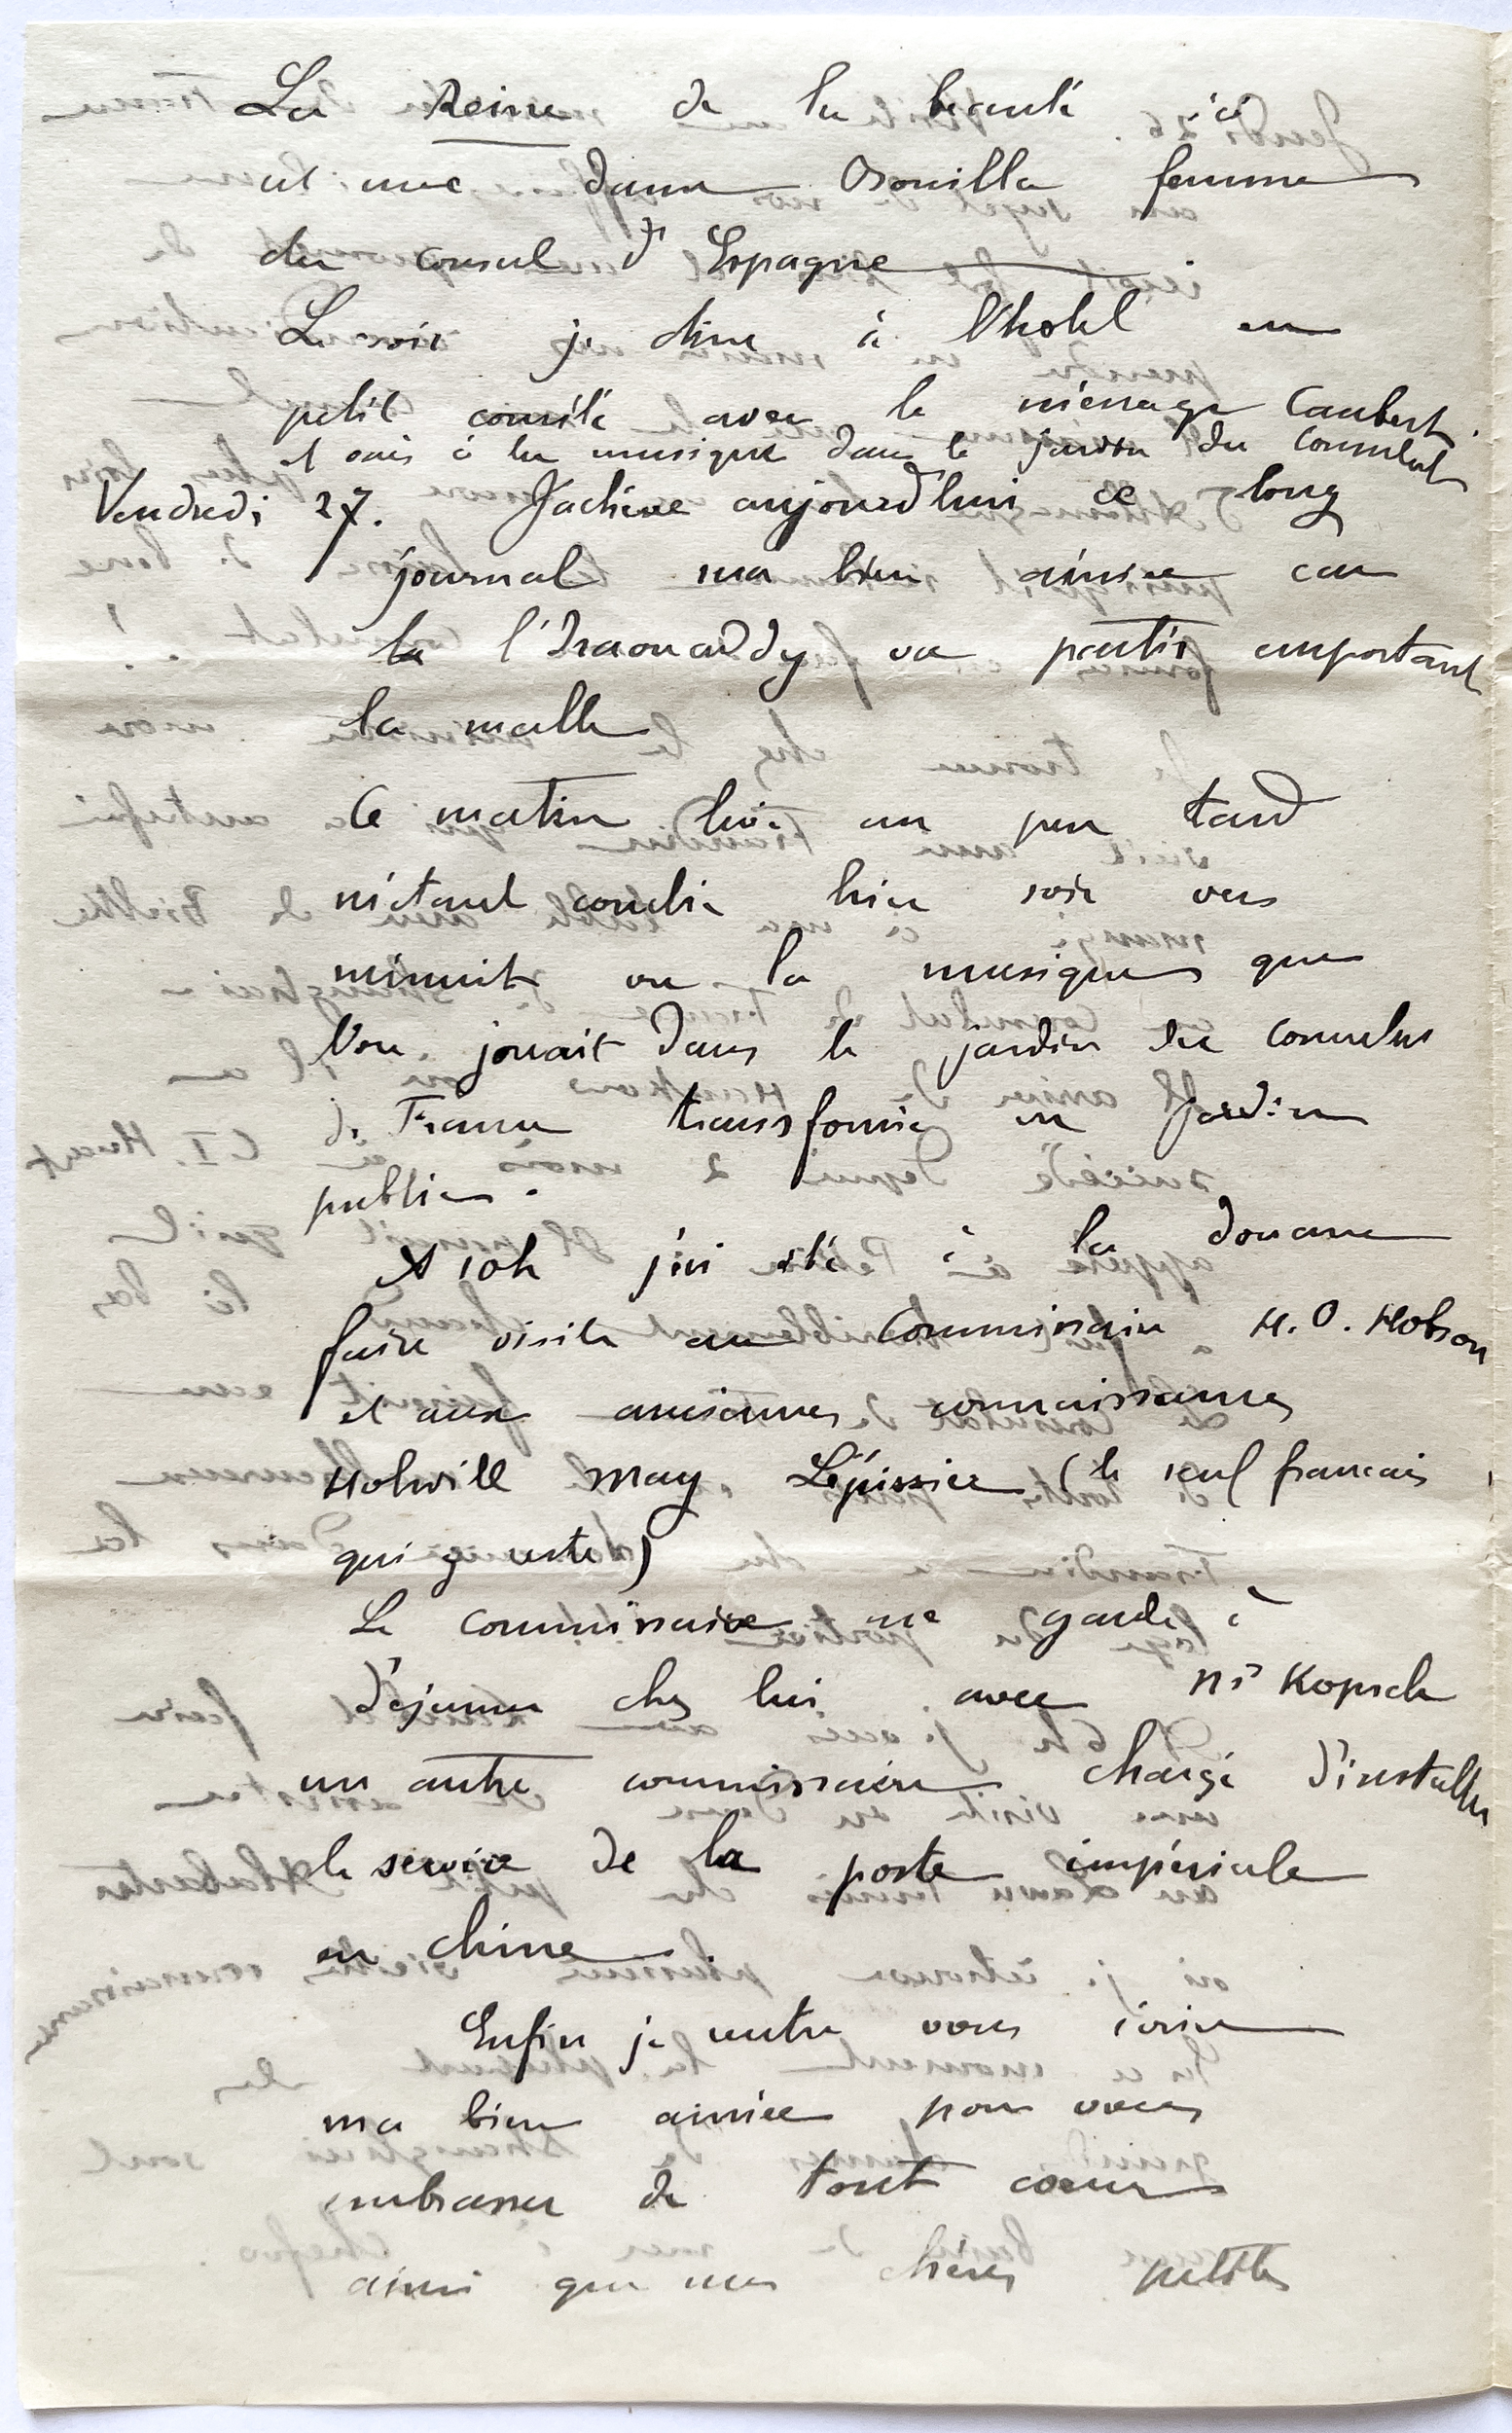 La Reine de la beauté ici
est une dame Osouilla femme
du consul d'Espagne
Le soir je dine à l'hotel en
petit comité avec le ménage Caubert.
et vais à la musique dans le jardin du Consulat
Vendredi 27. J'achève aujourd'hui ce long
journal ma bien aimée car
la l'Iraouaddy va partir emportant
la malle
Ce matin levé un peu tard
m'étant couché hier soir vers
minuit vu la musique que
l'on jouait dans le jardin du Consulat
de France transformé en Jardin
public.
A 10h j'ai été à la douane
faire visite au Commissaire H.O. Hobson
et aux anciennes connaissances
Holwill May Lépissier (le seul francais
qui y reste)
Le Commissaire me garde à
déjeuner chez lui avec Mr Kopsch
un autre commissaire chargé d'installer
le service de la poste impériale
en chine
Enfin je rentre vous écrire
ma bien aimée pour vous
embrasser de tout coeur
ainsi que mes chères petites